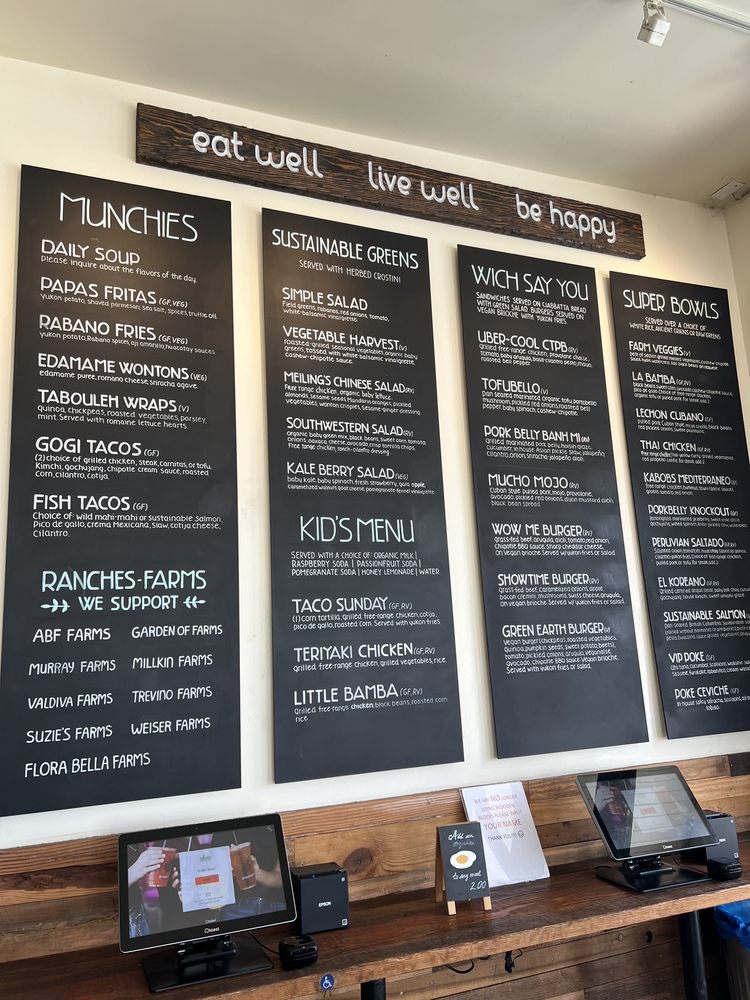 eat well live well be happy
MUNCHIES
DAILY SOUP
Please inquire about the flavors of the day.
PAPAS FRITAS (GF, VEG)
Yukon potato, shaved parmesan, sea salt, spices, truffle oil.
RABANO FRIES (GF, VEG)
Yukon potato, Rabano spices, aji amarillo, huacatay sauces.
EDAMAME WONTONS (VEG)
edamame puree, romano cheese, siracha agave.
TABOULEH WRAPS (V)
quinoa, chickpeas, roasted vegetables, parsley,
mint. Served with romaine lettuce hearts.
GOGI TACOS (GF)
(2) choice of grilled chicken, steak, carnitas, or tofu.
Kimchi, gochujang, chipotle cream sauce, roasted
corn, cilantro, cotija.
FISH TACOS (GF)
Choice of: wild mahi-mahi or sustainable Salmon.
Pico de gallo, crema Mexicana, slaw, cotija cheese,
Cilantro.
RANCHES-FARMS
WE SUPPORT
ABF FARMS
GARDEN OF FARMS
MURRAY FARMS
MILLKIN FARMS
VALDIVA FARMS
TREVINO FARMS
SUZIE'S FARMS
WEISER FARMS
FLORA BELLA FARMS
SUSTAINABLE GREENS
SERVED WITH HERBED CROSTINI
SIMPLE SALAD
Field greens, rabanos, red onions, tomato,
white-balsamic vinaigrette.
VEGETABLE HARVEST (V)
roasted-grilled seasonal vegetables, organic baby
greens, tossed with white-balsamic vinaigrette.
Cashew-chipotle sauce.
MEILING'S CHINESE SALAD (RV)
Free range chicken, organic baby lettuce,
almonds, sesame seeds, Mandarins oranges, pickled
vegetables, wonton crispies, sesame-ginger dressing
SOUTHWESTERN SALAD (RV)
organic baby green mix, black beans, sweet corn, tomato,
onions, avocado, oaxaca crisp tortilla chips,
Free range chicken, ranch-cilantro dressing
KALE BERRY SALAD (VEG)
baby kale, baby spinach, fresh strawberry, gala apple,
caramelized walnuts, goat cheese, pomegranate-fennel vinaigrette.
KID'S MENU
SERVED WITH A CHOICE OF: ORGANIC MILK |
RASPBERRY SODA | PASSIONFRUIT SODA |
POMEGRANATE SODA | HONEY LEMONADE | WATER
TACO SUNDAY (GF, RV)
(1) corn tortilla, grilled free-range chicken, cotija,
pico de gallo, roasted corn. Served with yukon fries.
TERIYAKI CHICKEN (GF, RV)
grilled free-range chicken, grilled vegetables, rice.
LITTLE BAMBA (GF, RV)
Grilled free-range chicken, black beans, roasted corn,
rice.
WICH SAY YOU
SANDWICHES SERVED ON CIABATTA BREAD
WITH GREEN SALAD. BURGERS SERVED ON
VEGAN BRIOCHE WITH YUKON FRIES.
UBER-COOL CTPB (RV)
grilled free-range chicken, provolone cheese,
tomato, baby arugula, basil-cilantro pesto, mayo,
roasted bell pepper.
TOFUBELLO (V)
pan seared marinated organic tofu, portobello
mushroom, pickled red onions, roasted bell
pepper, baby spinach, cashew-chipotle.
PORK BELLY BANH MI (RV)
grilled marinated pork belly, hoisin glaze,
cucumber, in house Asian pickle slaw, jalapeño,
cilantro, onion, sriracha-jalapeño aioli.
MUCHO MOJO (RV)
Cuban style pulled pork, mojo, provolone,
avocado, pickled red onions, dijon mustard aioli,
black bean spread.
WOW ME BURGER (RV)
grass-fed beef, arugula, aioli, tomato, red onion,
chipotle BBQ sauce, sharp cheddar cheese,
on vegan Brioche Served w/ yukon fries or salad.
SHOWTIME BURGER (RV)
grass-fed beef, caramelized onions, apple
bacon, cremini mushrooms, swiss cheese, arugula,
on vegan brioche. Served w/ yukon fries or salad.
GREEN EARTH BURGER (V)
Vegan burger (chickpeas, roasted vegetables,
quinoa, pumpkin seeds, sweet potato, beets),
tomato, pickled, onions, arugula, veganaise,
avocado, Chipotle BBQ sauce Vegan Brioche.
Served with yukon fries or Salad.
SUPER BOWLS
SERVED OVER A CHOICE OF:
WHITE RICE, ANCIENT GRAINS OR RAW GREENS
FARM VEGGIES (V)
LA BAMBA (GF, RV)
LECHON CUBANO (GF)
THAI CHICKEN (GF, RV)
KABOBS MEDITERRANEO
PORKBELLY KNOCKOUT
PERUVIAN SALTADO
EL KOREANO (GF, RV)
SUSTAINABLE SALMON
VIP POKE (GF)
POKE CEVICHE (GF)
WE ARE NO LONGER
USING WOODEN
BLOCKS PLEASE INPUT
YOUR NAME
THANK YOU!!!
Add an
organic
to any meal
2.00
EPSON
toast
toast